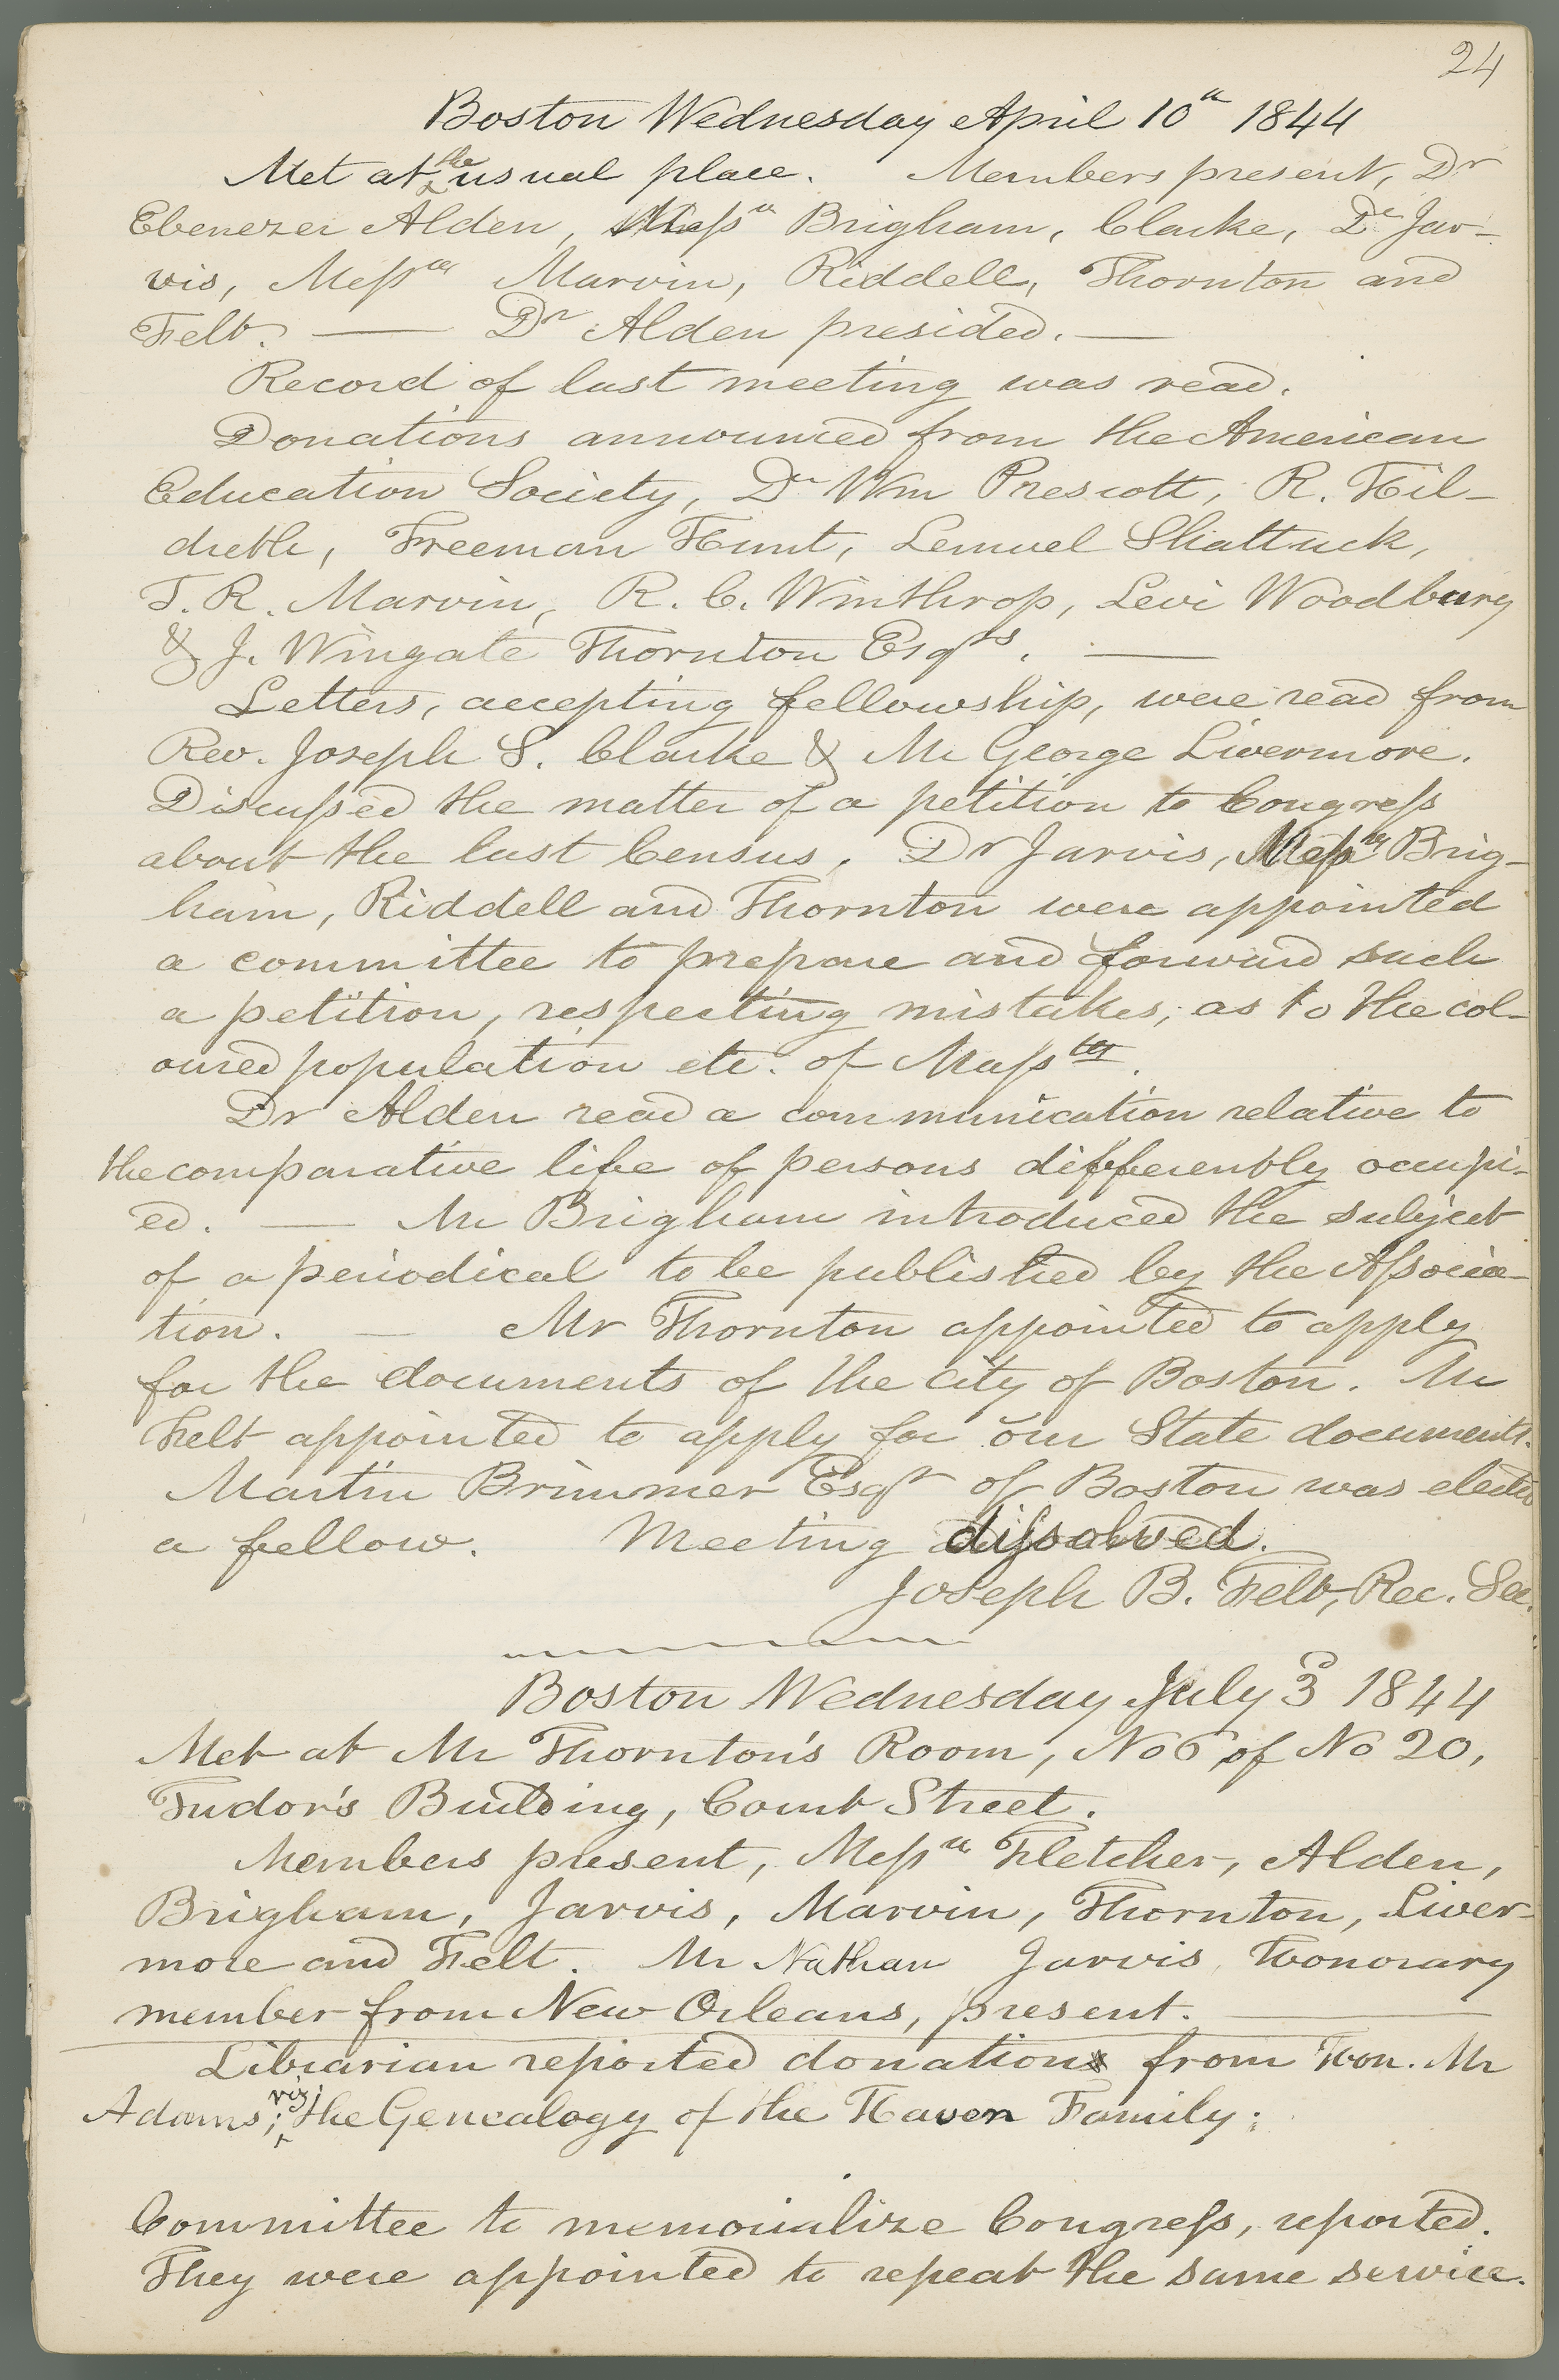 24
Boston Wednesday April 10th 1844
Met at the usual place. Members present, Dr
Ebenezer Alden, Messrs Brigham, Clarke, Dr Jar-
vis, Messrs Marvin, Riddell, Thornton and
Felt. — Dr Alden presided. —
Record of last meeting was read.
Donations announced from the American
Education Society, Dr Wm Prescott, R. Hil-
dreth, Freeman Hunt, Lemuel Shattuck,
T. R. Marvin, R. C. Winthrop, Levi Woodbury
& J. Wingate Thornton Esqrs. —
Letters, accepting fellowship, were read from
Rev. Joseph S. Clarke & Mr George Livermore.
Discussed the matter of a petition to Congress
about the last Census. Dr Jarvis, Messrs Brig-
ham, Riddell and Thornton were appointed
a committee to prepare and forward such
a petition, respecting mistakes, as to the col-
oured population etc. of Massts.
Dr Alden read a communication relative to
the comparative life of persons differently occupi-
ed. — Mr Brigham introduced the subject
of a periodical to be published by the Associa-
tion. — Mr Thornton appointed to apply
for the documents of the city of Boston. Mr
Felt appointed to apply for our State documents.
Martin Brimmer Esqr of Boston was elected
a fellow. Meeting dissolved.
Joseph B. Felt, Rec. Sec.
Boston Wednesday July 3d 1844
Met at Mr Thornton's Room, No 6 of No 20,
Tudor's Building, Court Street.
Members present, Messrs Fletcher, Alden,
Brigham, Jarvis, Marvin, Thornton, Liver-
more and Felt. Mr Nathan Jarvis, Honorary
member from New Orleans, present. —
Librarian reported donations from Hon. Mr
Adams; viz; the Genealogy of the Haven Family;
Committee to memorialize Congress, reported.
They were appointed to repeat the same service.